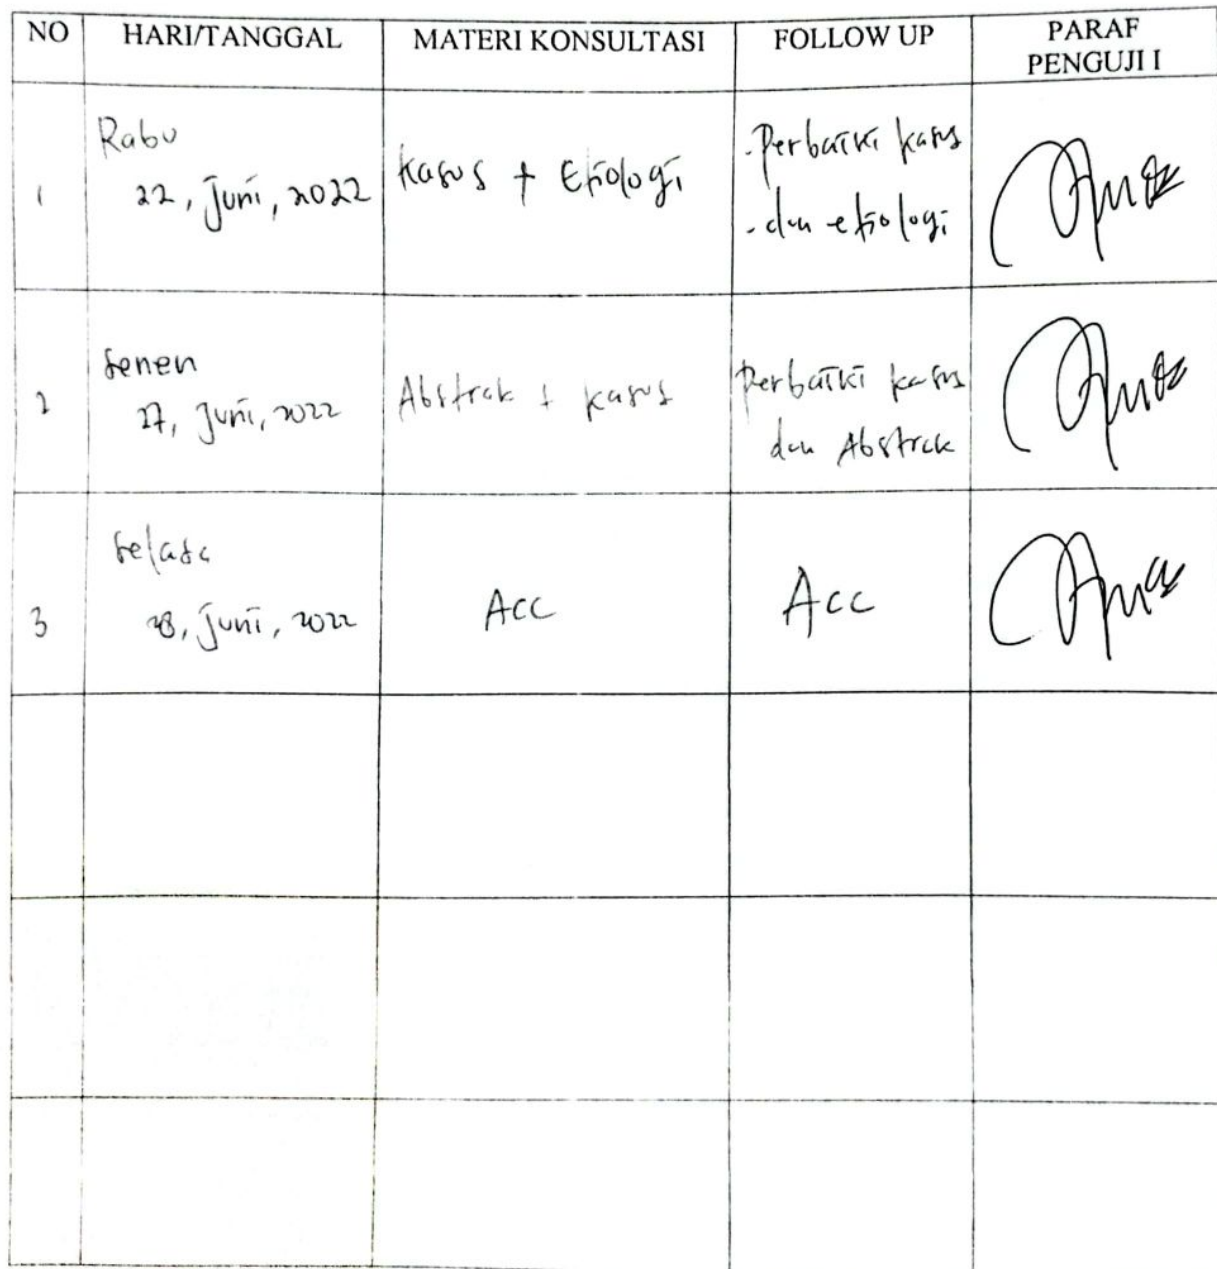 NO HARI/TANGGAL MATERI KONSULTASI FOLLOW UP PARAF
PENGUJI I
1 Rabu
22, Juni, 2022
Kasus + Etiologi
- Perbaiki kasus
- dan etiologi
2 Senen
27, Juni, 2022
Abstrak + kasus
Perbaiki kasus
dan Abstrak
3 Selasa
28, Juni, 2022
Acc
Acc